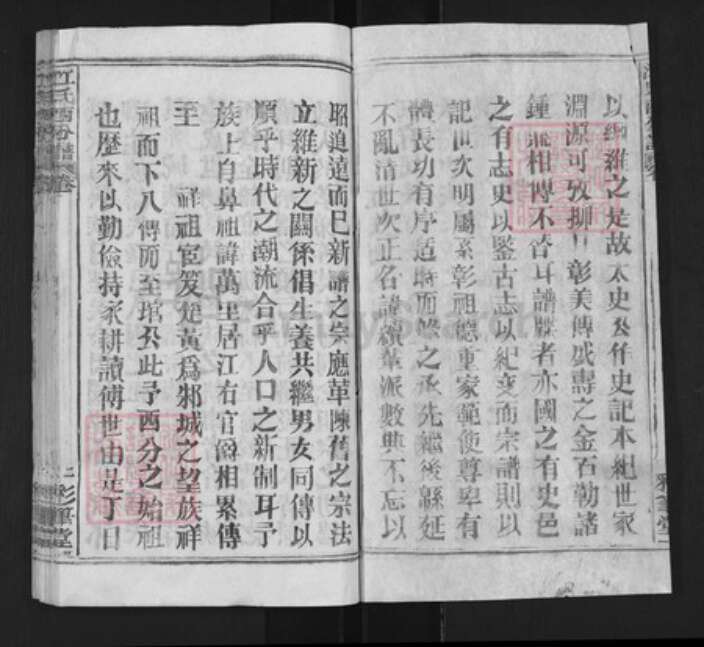 以綱維之是故太史公作史記本紀世家
淵源可攷抑且彰美傳盛壽之金石勒諸
鍾鼎相傳不啻耳譜牒者亦國之有史邑
之有志史以鑒古志以紀變而宗譜則以
記世次明屬系彰祖德重家範使尊卑有
體長幼有序適時而修之承先繼後緜延
不亂清世次正名諱續葺派數典不忘以
昭追遠而已新譜之宗應革陳舊之宗法
立維新之關係倡生養共繼男女同傳以
順乎時代之潮流合乎人口之新制耳予
族上自鼻祖諱萬里居江右官爵相累傳
至 祥祖宦笈楚黃爲邾城之望族祥
祖而下八傳而至琯公此予西分之始祖
也歷來以勤儉持家耕讀傳世由是丁日
江氏西分譜 卷
上 彩筆堂